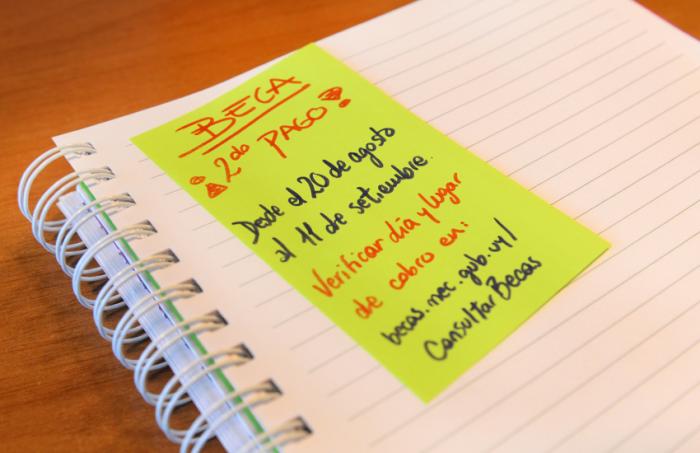 BECA
¡2do PAGO!
Desde el 20 de agosto
al 11 de setiembre.
Verificar día y lugar
de cobro en:
becas.mec.gub.uy/
ConsultarBecas